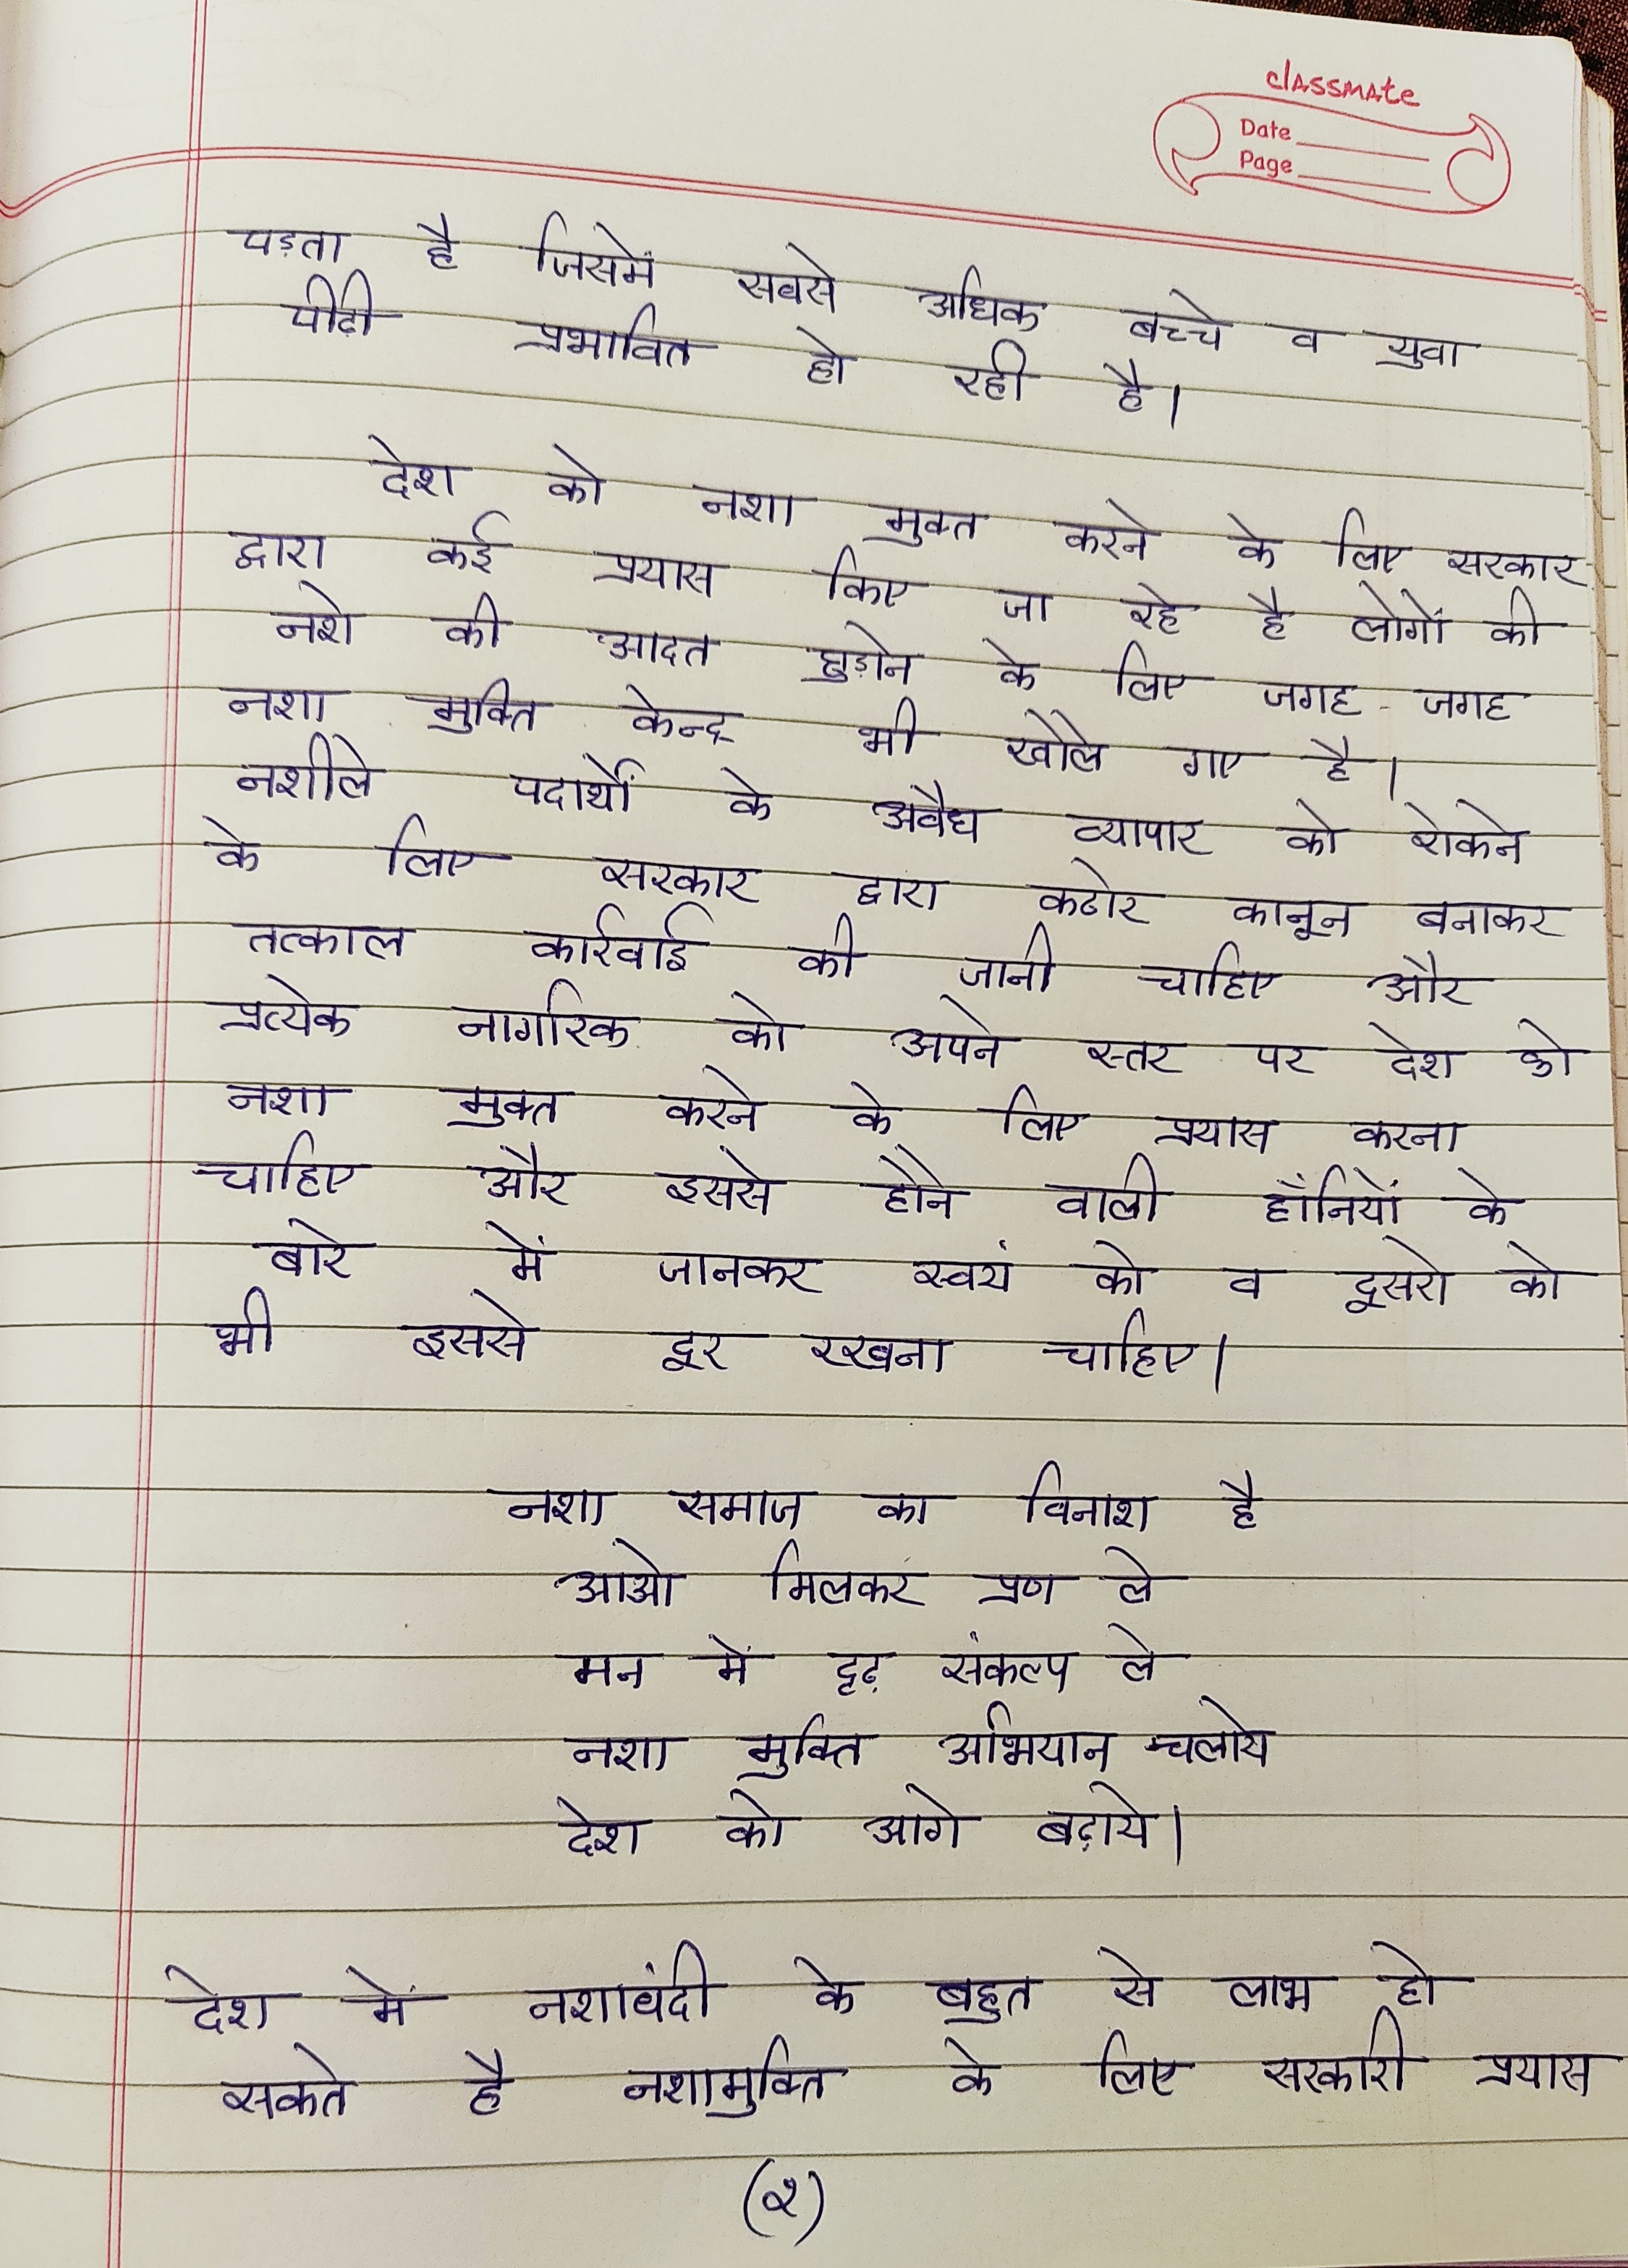 classmate
Date
Page
पड़ता है जिसमें सबसे अधिक बच्चे व युवा
पीढ़ी प्रभावित हो रही है।
देश को नशा मुक्त करने के लिए सरकार
द्वारा कई प्रयास किए जा रहे है लोगों की
नशे की आदत छुड़ाने के लिए जगह - जगह
नशा मुक्ति केन्द्र भी खोले गए है।
नशीले पदार्थों के अवैध व्यापार को रोकने
के लिए सरकार द्वारा कठोर कानून बनाकर
तत्काल कार्रवाई की जानी चाहिए और
प्रत्येक नागरिक को अपने स्तर पर देश को
नशा मुक्त करने के लिए प्रयास करना
चाहिए और इससे होने वाली हाँनियों के
बारे में जानकर स्वयं को व दूसरो को
भी इससे दूर रखना चाहिए।
नशा समाज का विनाश है
आओ मिलकर प्रण ले
मन में दृढ़ संकल्प ले
नशा मुक्ति अभियान चलाये
देश को आगे बढ़ाये।
देश में नशाबंदी के बहुत से लाभ हो
सकते है नशामुक्ति के लिए सरकारी प्रयास
(२)